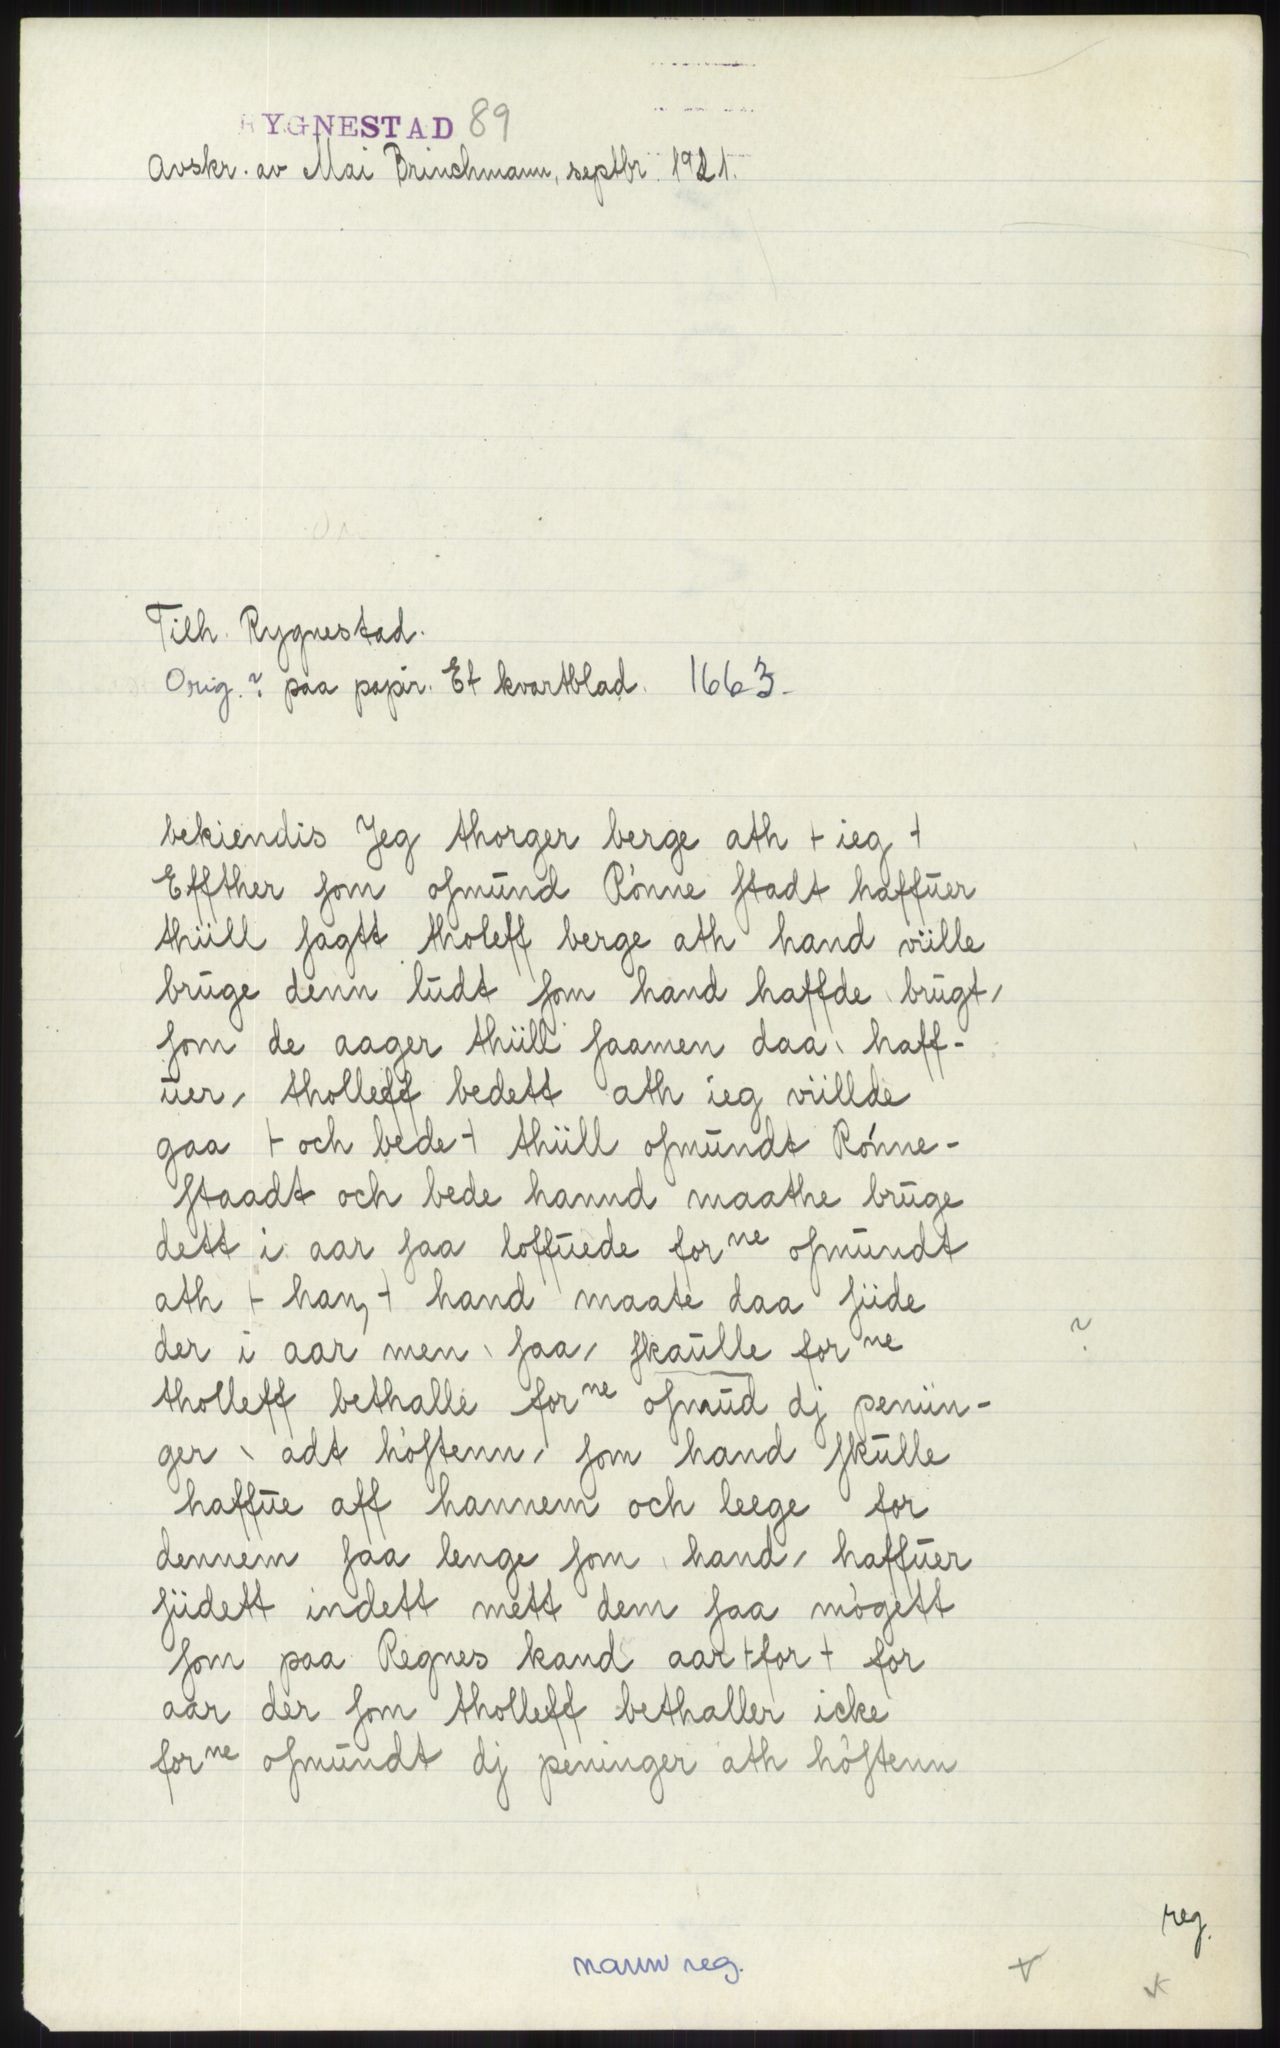 RYGNESTAD 89
Avskr. av Mai Brinchmann, septbr. 1921.
Tilh. Rygnestad.
Orig.? paa papir. Et kvartblad. 1663.
bekiendis Jeg thorger berge ath + ieg +
Effther som osmund Rónne stadt haffuer
thiill sagtt tholeff berge ath hand viille
bruge denn ludt som hand haffde brugt,
som de aager thiill saamen daa haff-
uer, tholleff bedett ath ieg viillde
gaa + och bede + thiill osmundt Rónne-
staadt och bede hannd maathe bruge
dett i aar saa loffuede forne osmundt
ath + han, + hand maate daa siide
der i aar men saa, skaulle forne ?
tholleff bethalle forne osmud dj peniin-
ger adt hòstenn, som hand skulle
haffue aff hannem och leege for
dennem saa lenge som hand, haffuer
siidett indett mett dem saa mògett
som paa Regnes kand aar + for + for
aar der som tholleff bethaller icke
forne osmundt dj peninger ath hòstenn
reg.
navn reg.